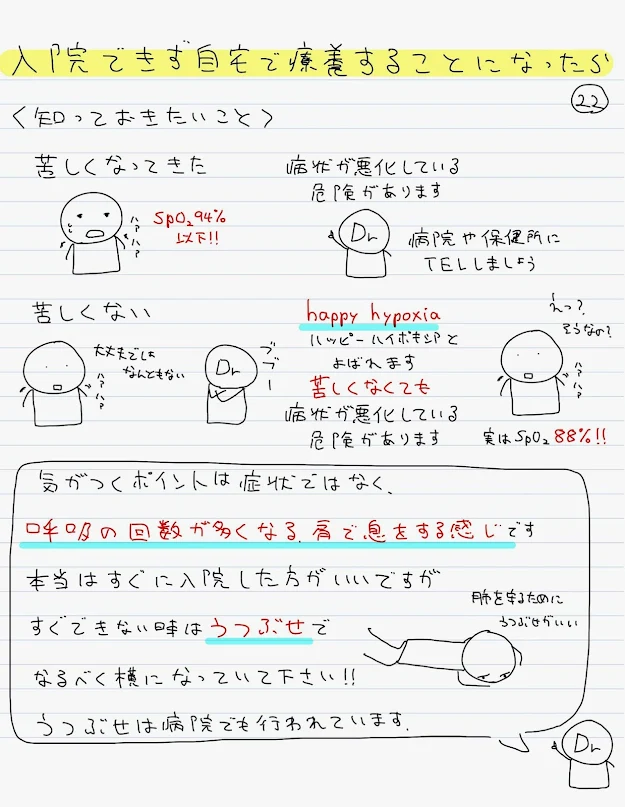 入院できず自宅で療養することになったら
22
〈知っておきたいこと〉
苦しくなってきた
SpO₂94%
以下!!
ハァ
ハァ
病状が悪化している
危険があります
Dr
病院や保健所に
TELしましょう
苦しくない
大丈夫でしょ
なんともない
ハァ
ハァ
Dr
ブブー
happy hypoxia
ハッピーハイポキシアと
よばれます
苦しくなくても
病状が悪化している
危険があります
えっ?
そうなの?
ハァ
ハァ
実はSpO₂ 88%!!
気がつくポイントは症状ではなく、
呼吸の回数が多くなる、肩で息をする感じです
本当はすぐに入院した方がいいですが
すぐできない時はうつぶせで
なるべく横になっていて下さい!!
肺を守るために
うつぶせがいい
うつぶせは病院でも行われています.
Dr